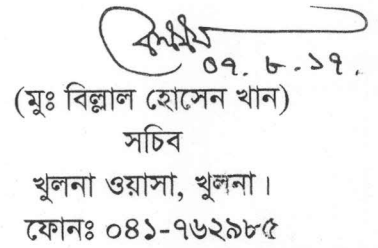 ০৭.৮.১৭.
(মুঃ বিল্লাল হোসেন খান)
সচিব
খুলনা ওয়াসা, খুলনা।
ফোনঃ ০৪১-৭৬২৯৮৫